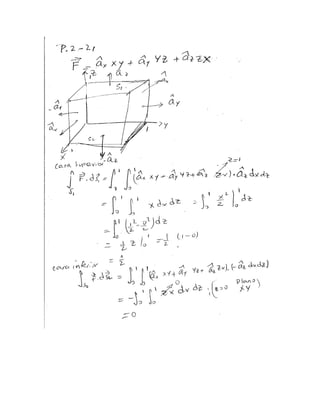 P.2-21
F⃗ = âx xy + ây yz + âz zx
z âz
S1
âx ây
âx y
1
x S2
-âz
cara superior
z=1
∫S1 F⃗·ds⃗ = ∫₀¹∫₀¹(âx xy - ây yz + âz zx)·âz dx dz
= ∫₀¹∫₀¹ x dx dz = ∫₀¹ x²/2 |₀¹ dz
= ∫₀¹(1²/2 - 0²/2)dz
= 1/2 z |₀¹ = 1/2 (1-0)
= 1/2
cara inferior
∫S2 F⃗·ds⃗ = ∫₀¹∫₀¹(âx xy + ây yz + âz zx)·(-âz dx dz)
= -∫₀¹∫₀¹ zx⁰ dx dz ; (z=0 plano xy
= 0